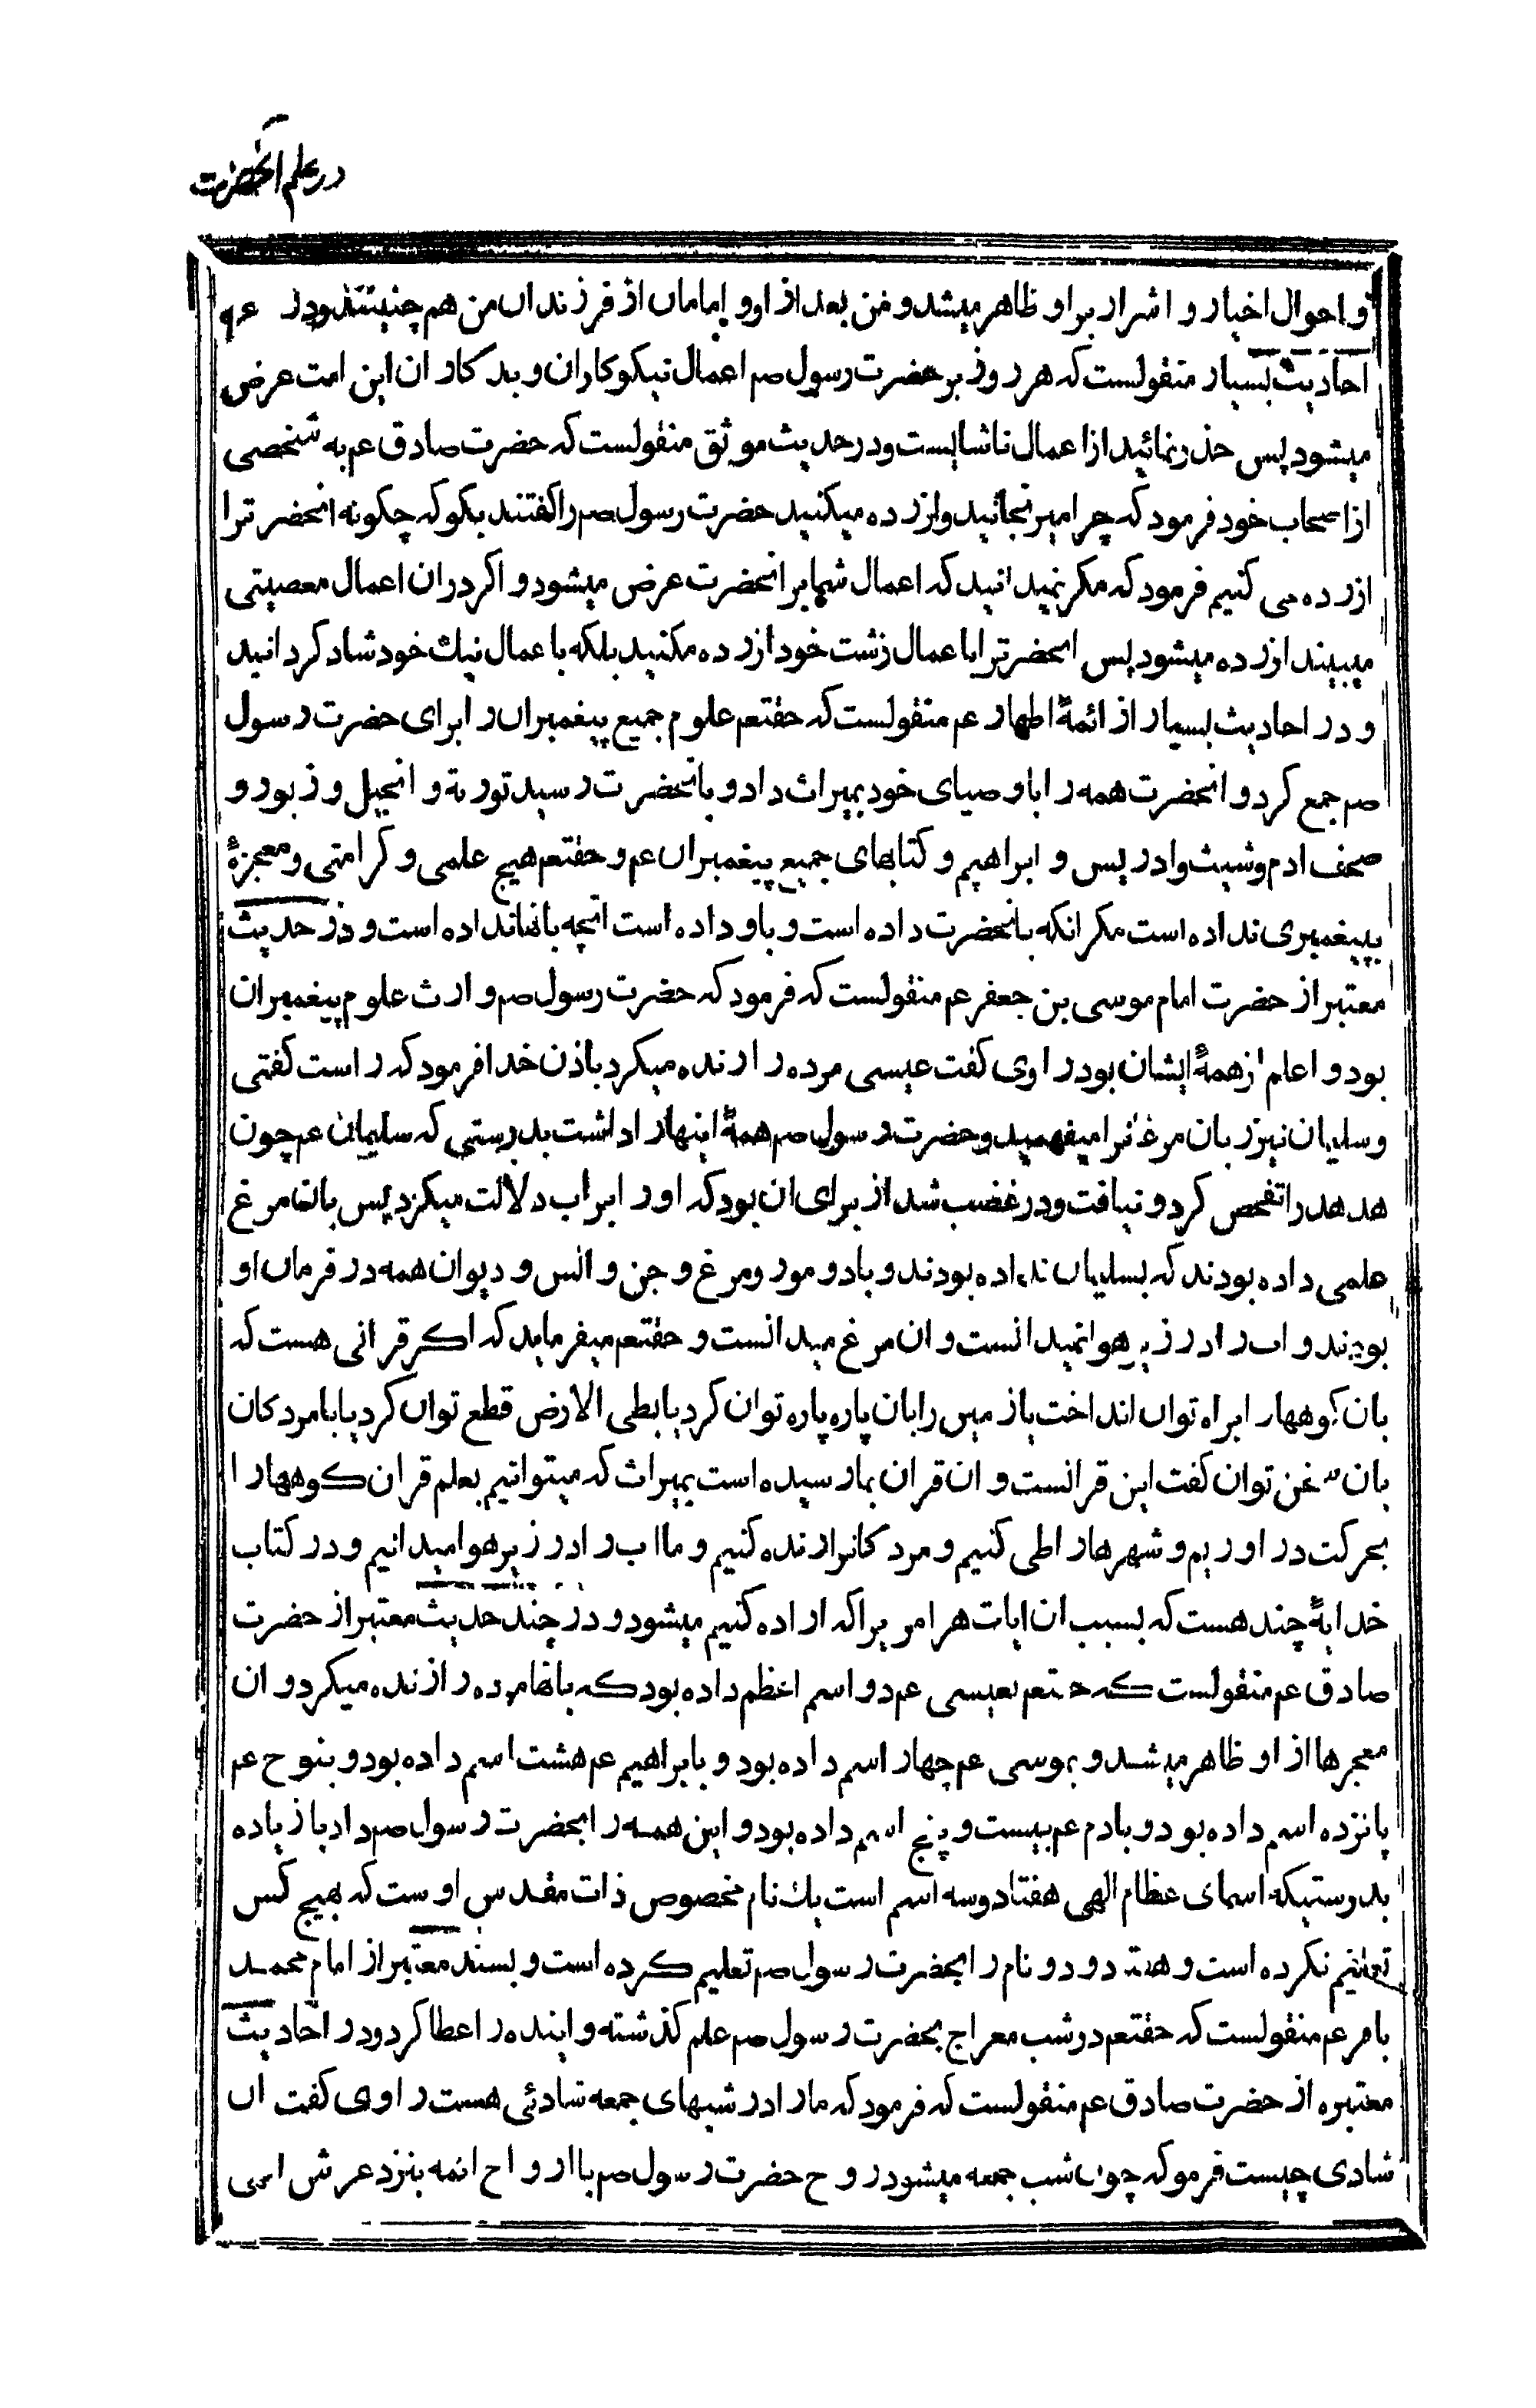 در علم آنحضرت
و احوال اخیار و اشرار بر او ظاهر میشد و من بعد از او و امامان از فرزندان من هم چنینند و در
احادیث بسیار منقولست که هر روز بر حضرت رسول صم اعمال نیکوکاران و بدکاران این امت عرض
میشود پس حذر نمائید از اعمال ناشایست و در حدیث موثق منقولست که حضرت صادق عم به شخصی
از اصحاب خود فرمود که چرا میرنجانید و ازرده میکنید حضرت رسول صم را کفتند بکو که چکونه انحضرترا
ازرده می کنیم فرمود که مکر نمیدانید که اعمال شما بر انحضرت عرض میشود و اکر دران اعمال معصیتی
میبیند ازرده میشود پس انحضرترا باعمال زشت خود ازرده مکنید بلکه باعمال نیك خود شاد کردانید
و در احادیث بسیار از ائمهٔ اطهار عم منقولست که حقتعم علوم جمیع پیغمبران را برای حضرت رسول
صم جمع کرد و انحضرت همه را باوصیای خود بمیراث داد و بانحضرت رسید توریة و انجیل و زبور و
صحف ادم و شیث و ادریس و ابراهیم و کتابهای جمیع پیغمبران عم و حقتعم هیچ علمی و کرامتی و معجزهٔ
بپیغمبری نداده است مکر انکه بانحضرت داده است و باو داده است انچه بانها نداده است و در حدیث
معتبر از حضرت امام موسی بن جعفر عم منقولست که فرمود که حضرت رسول صم وارث علوم پیغمبران
بود و اعلم از همهٔ ایشان بود راوی کفت عیسی مرده را زنده میکرد باذن خدا فرمود که راست کفتی
و سلیمان نیز زبان مرغانرا میفهمید و حضرت رسول صم همهٔ اینها را داشت بدرستی که سلیمان عم چون
هدهد را تفحص کرد و نیافت و در غضب شد از برای ان بود که او را بر اب دلالت میکرد پس بان مرغ
علمی داده بودند که بسلیمان نداده بودند و باد و مور و مرغ و جن و انس و دیوان همه در فرمان او
بودند و اب را در زیر هوا نمیدانست و ان مرغ میدانست و حقتعم میفرماید که اکر قرانی هست که
بان کوهها را براه توان انداخت یا زمین را بان پاره پاره توان کرد یا بطی الارض قطع توان کرد یا با مردکان
بان سخن توان کفت این قرانست و ان قران بما رسیده است بمیراث که میتوانیم بعلم قران کوهها را
بحرکت در اوریم و شهرها را طی کنیم و مردکانرا زنده کنیم و ما اب را در زیر هوا میدانیم و در کتاب
خدا ایهٔ چند هست که بسبب ان ایات هر امریرا که اراده کنیم میشود و در چند حدیث معتبر از حضرت
صادق عم منقولست که حقتعم بعیسی عم دو اسم اعظم داده بود که بانها مرده را زنده میکرد و ان
معجزها از او ظاهر میشد و بموسی عم چهار اسم داده بود و بابراهیم عم هشت اسم داده بود و بنوح عم
پانزده اسم داده بود و بادم عم بیست و پنج اسم داده بود و این همه را بحضرت رسول صم داد با زیاده
بدرستیکه اسمای عظام الهی هفتاد و سه اسم است یك نام مخصوص ذات مقدس اوست که بهیچ کس
تعلیم نکرده است و هفتاد و دو نام را بحضرت رسول صم تعلیم کرده است و بسند معتبر از امام محمد
باقر عم منقولست که حقتعم در شب معراج بحضرت رسول صم علم کذشته و اینده را عطا کرد و در احادیث
معتبره از حضرت صادق عم منقولست که فرمود که ما را در شبهای جمعه شادئی هست راوی کفت ان
شادی چیست فرمو که چون شب جمعه میشود روح حضرت رسول صم با ارواح ائمه بنزد عرش